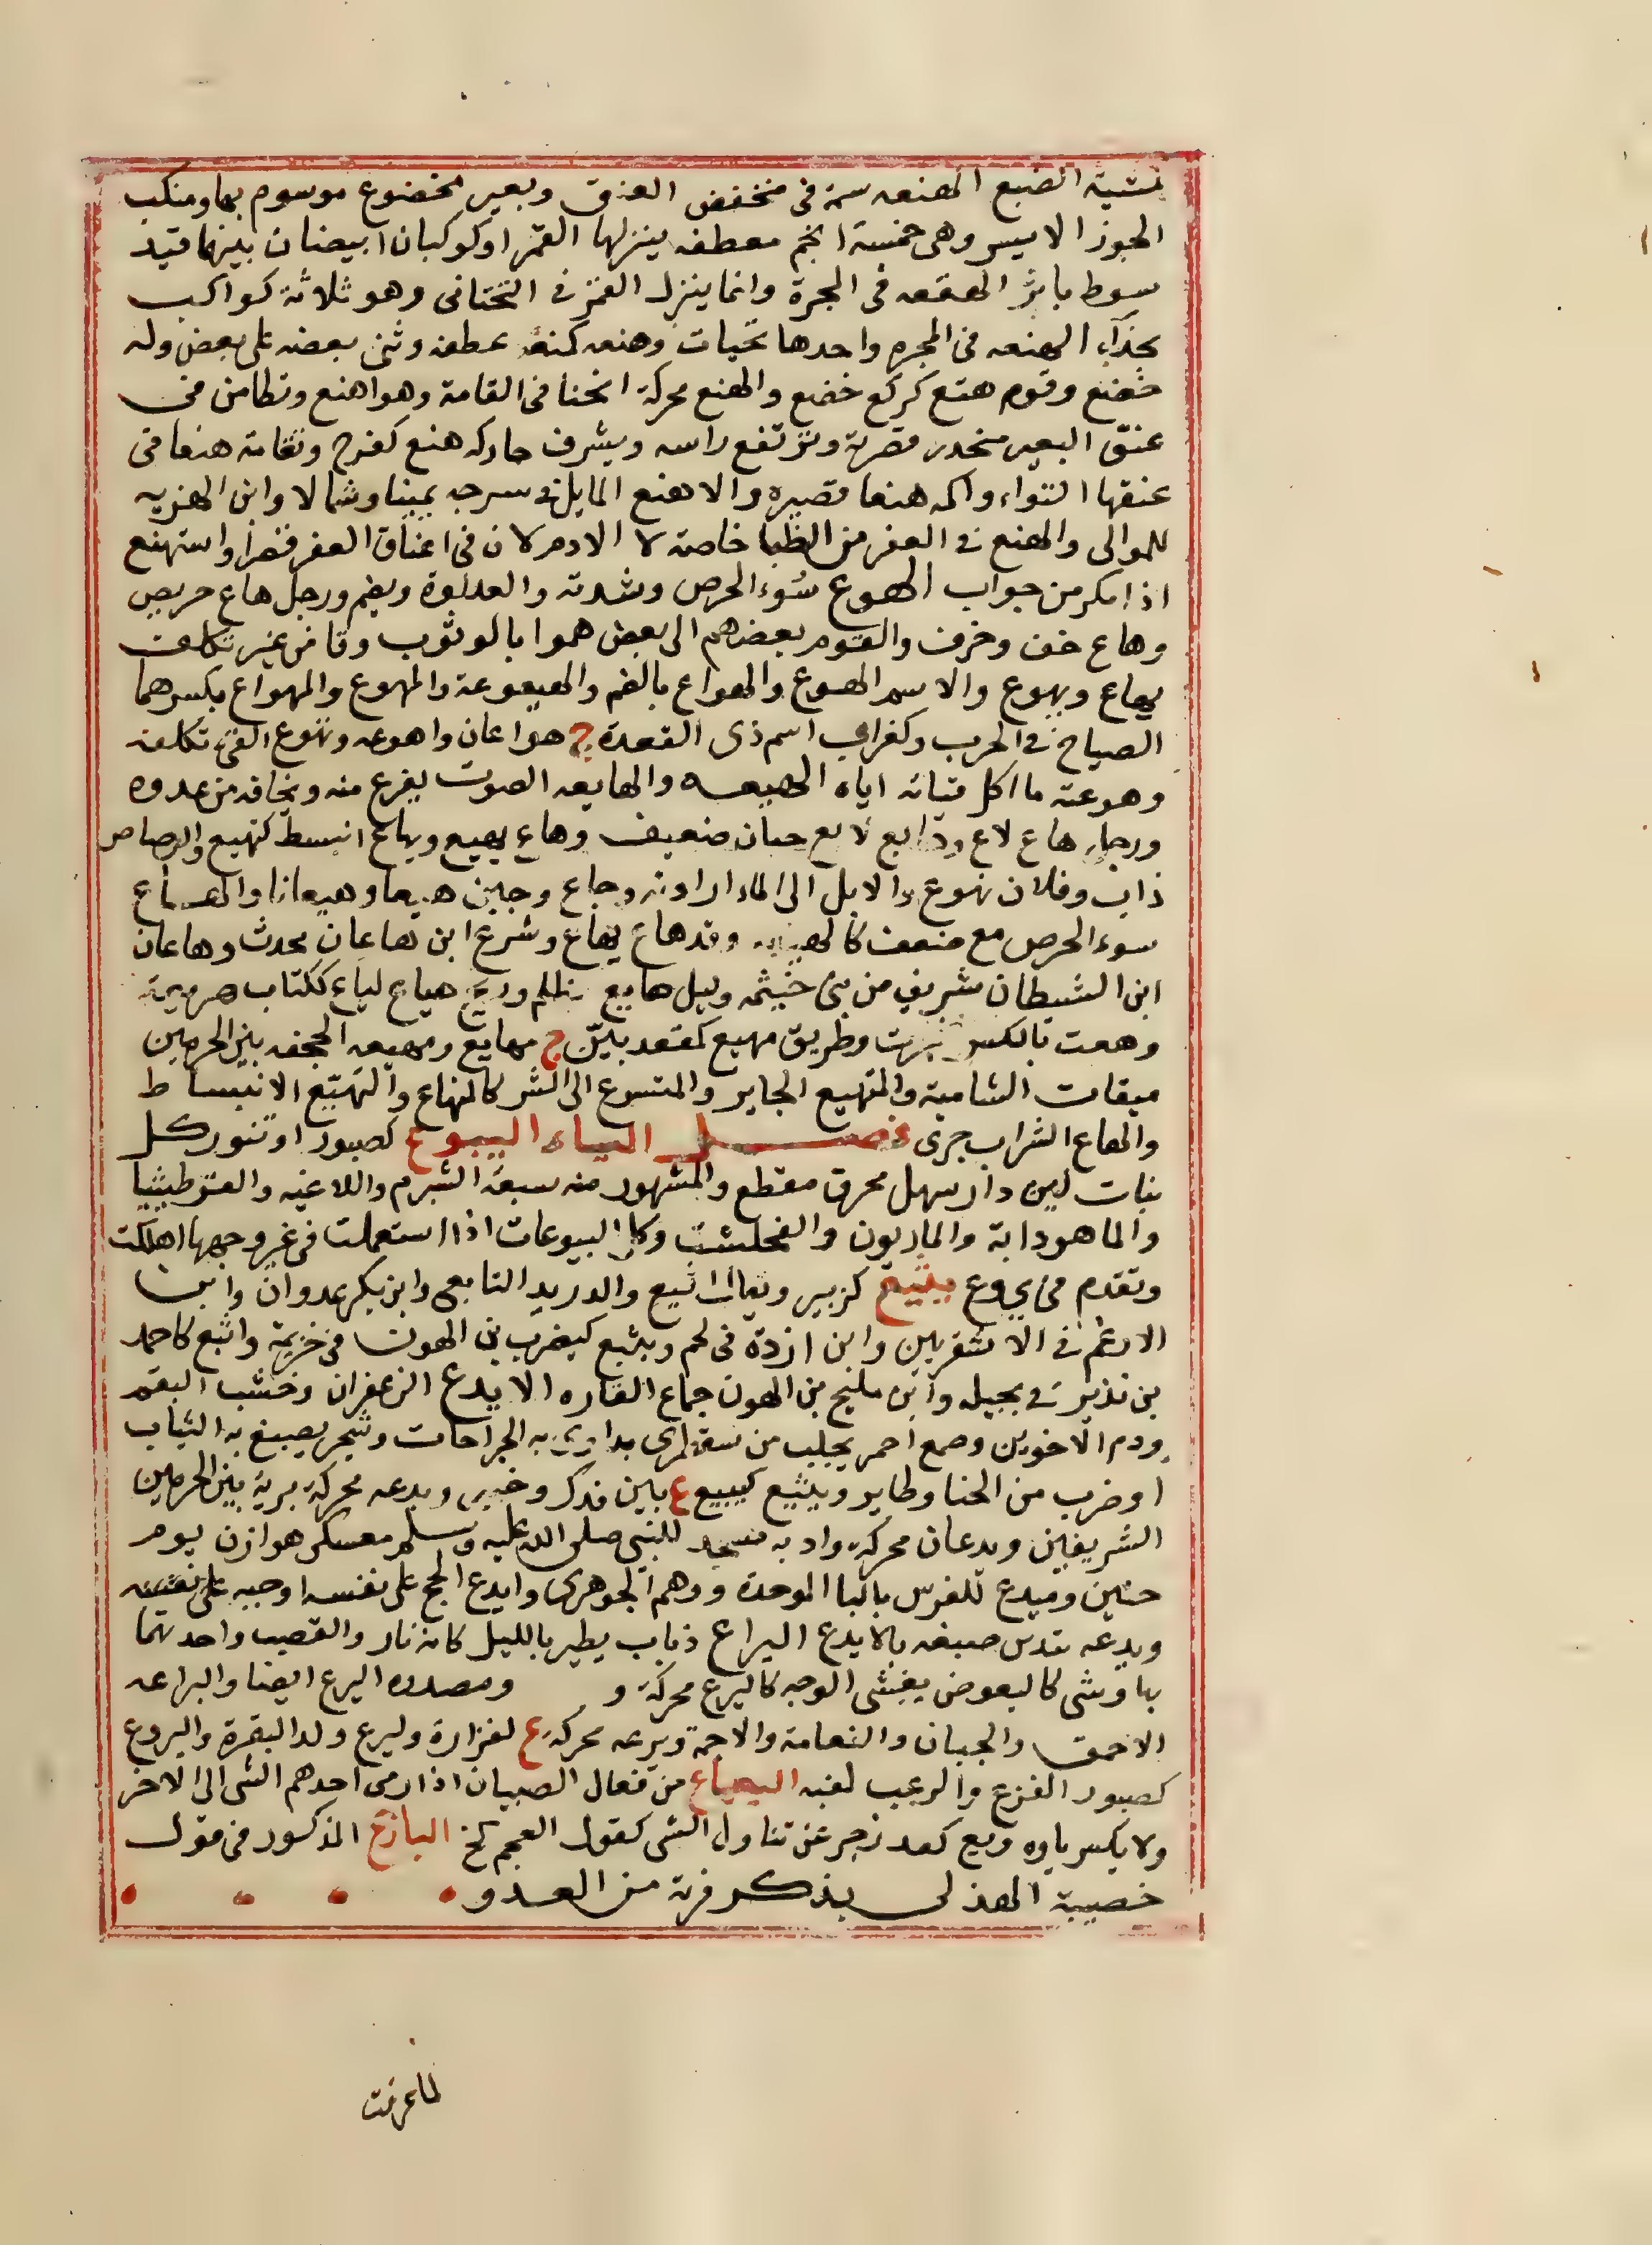 كمشية الضبع الهنعه سمة فى منخفض العنق وبعير مخضوع موسوم بها ومنكب
الجوزا الايسر وهى خمسة انجم معطفه ينزلها القمر اوكوكبان ابيضان بينهما قيد
سوط باثر الهقعه فى المجرة وانما ينزل القمر فى التحتانى وهو ثلاثة كواكب
بحذاء الهنعه فى المجره واحدها تحيات وهنعه كمنعه عطفه وثنى بعضه على بعض وله
خضع وقوم هنع كركع خضع والهنع محركة انحنا فى القامة وهو اهنع وتطامن فى
عنق البعير منحدر قصرة وترتفع راسه ويشرف حاركه هنع كفرح ونعامة هنعا فى
عنقها التواء واكه هنعا قصيره والاهنع المايل فى سرجه يمينا وشمالا وابن الهزيه
للموالى والهنع فى العفر من الظبا خاصة لا الادم لان فى اعناق العفر قصرا واستهنع
اذا مكر من جواب الهوع سوء الحرص وشدته والعداوة ويضم ورجل هاع حريص
وهاع خف وخرف والقوم بعضهم الى بعض هموا بالوثوب وقا من غير تكلف
يهاع ويهوع والاسم الهوع والهواع بالضم والهيعوعة والمهوع والمهواع بكسرهما
الصياح فى الحرب وكغراب اسم ذى القعدة ج هواعان واهوعه وتهوع القى تكلفه
وهوعته ما اكل قياته اياه الهيعه والهايعه الصوت يفزع منه ويخافه من عدوه
ورجل هاع لاع وهايع لايع جبان ضعيف وهاع يهيع ويهاع انبسط كتهيع والرصاص
ذاب وفلان تهوع والابل الى الماء ارادته وجاع وجبن هيعا وهيعانا والهياع
سوء الحرص مع ضعف كالهيعه وقد هاع يهاع وشرع ابن هاعان محدث وهاعان
ابن الشيطان شريف من بنى خيثمه وليل هايع مظلم وريح هياع لياع ككتاب سريعة
وهعت بالكسر ضجرت وطريق مهيع كمقعد بين ج مهايع ومهيعه الجحفه بين الحرمين
ميقات الشامية والمتهيع الجاير والمتسوع الى الشر كالمنهاع والتهيع الانبساط
وانهاع الشراب جرى فصل الياء اليبوع كصبور اوتنور كل
نبات لين دار سهل محرق مقطع والمشهور منه سبعة الشبرم واللاغيه والعرطنيثا
والماهودانة والماريون والفنجلشت وكل اليبوعات اذا استعملت فى غير وجهها اهلكت
وتقدم فى يروع يثيع كزبير ويقال اثيع والد زيد التابعى وابن بكر عدوان وابن
الارغم فى الاشعريين وابن ازدة فى لخم ويثيع كيضرب بن الهون فى خزيمة واثبع كاحمد
بن نذير فى بجيله وابن مليح بن الهون جماع القاره الايدع الزعفران وخشب البقم
ودم الاخوين وصمغ احمر يجلب من سقطرى يداوى به الجراحات وشجر يصبغ به الثياب
اوضرب من الحنا وطاير ويثيع كيبيع ع بين فدك وخيبر ويدعه محركة برية بين الحرمين
الشريفين ويدعان محركة واد به مسجد للنبى صلى الله عليه وسلم معسكر هوازن يوم
حنين وميدع للفرس بالبا الموحدة ووهم الجوهرى وايدع الحج على نفسه اوجبه على نفسه
ويدعه تقدس صبغه بالايدع اليراع ذباب يطير بالليل كانه نار والقصب واحدتهما
بها وشى كالبعوض يغشى الوجه كاليرع محركة و ومصدره اليرع ايضا واليراعه
الاحمق والجبان والنعامة والاجمة ويرعه محركة ع لفزارة وليرع ولد البقرة واليروع
كصبور الفزع والرعب لغيه اليهياع من فعال الصبيان اذا رمى احدهم الشى الى الاخر
ولا يكسر ياوه ويع كمد زجر عن تناول الشى كقول العجم كخ اليازع المذكور فى قول
خصيبة الهذلى يذكر فرية من العدو
لماعرفت